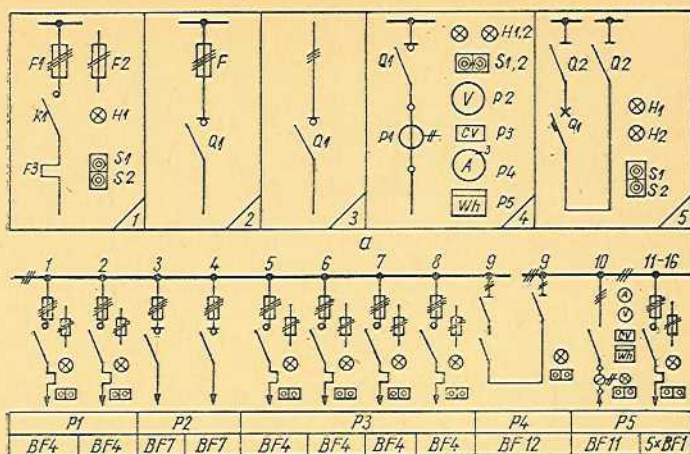 F1 F2 H1 K1 F3 S1 S2 1
F Q1 2
Q1 3
Q1 P1 H1,2 S1,2 V P2 CV P3 A 3 P4 Wh P5 4
Q2 Q2 Q1 H1 H2 S1 S2 5
а
1 2 3 4 5 6 7 8 9 9 10 11-16
A
V
CV
Wh
P1 P2 P3 P4 P5
BF4 BF4 BF7 BF7 BF4 BF4 BF4 BF4 BF12 BF11 5×BF1